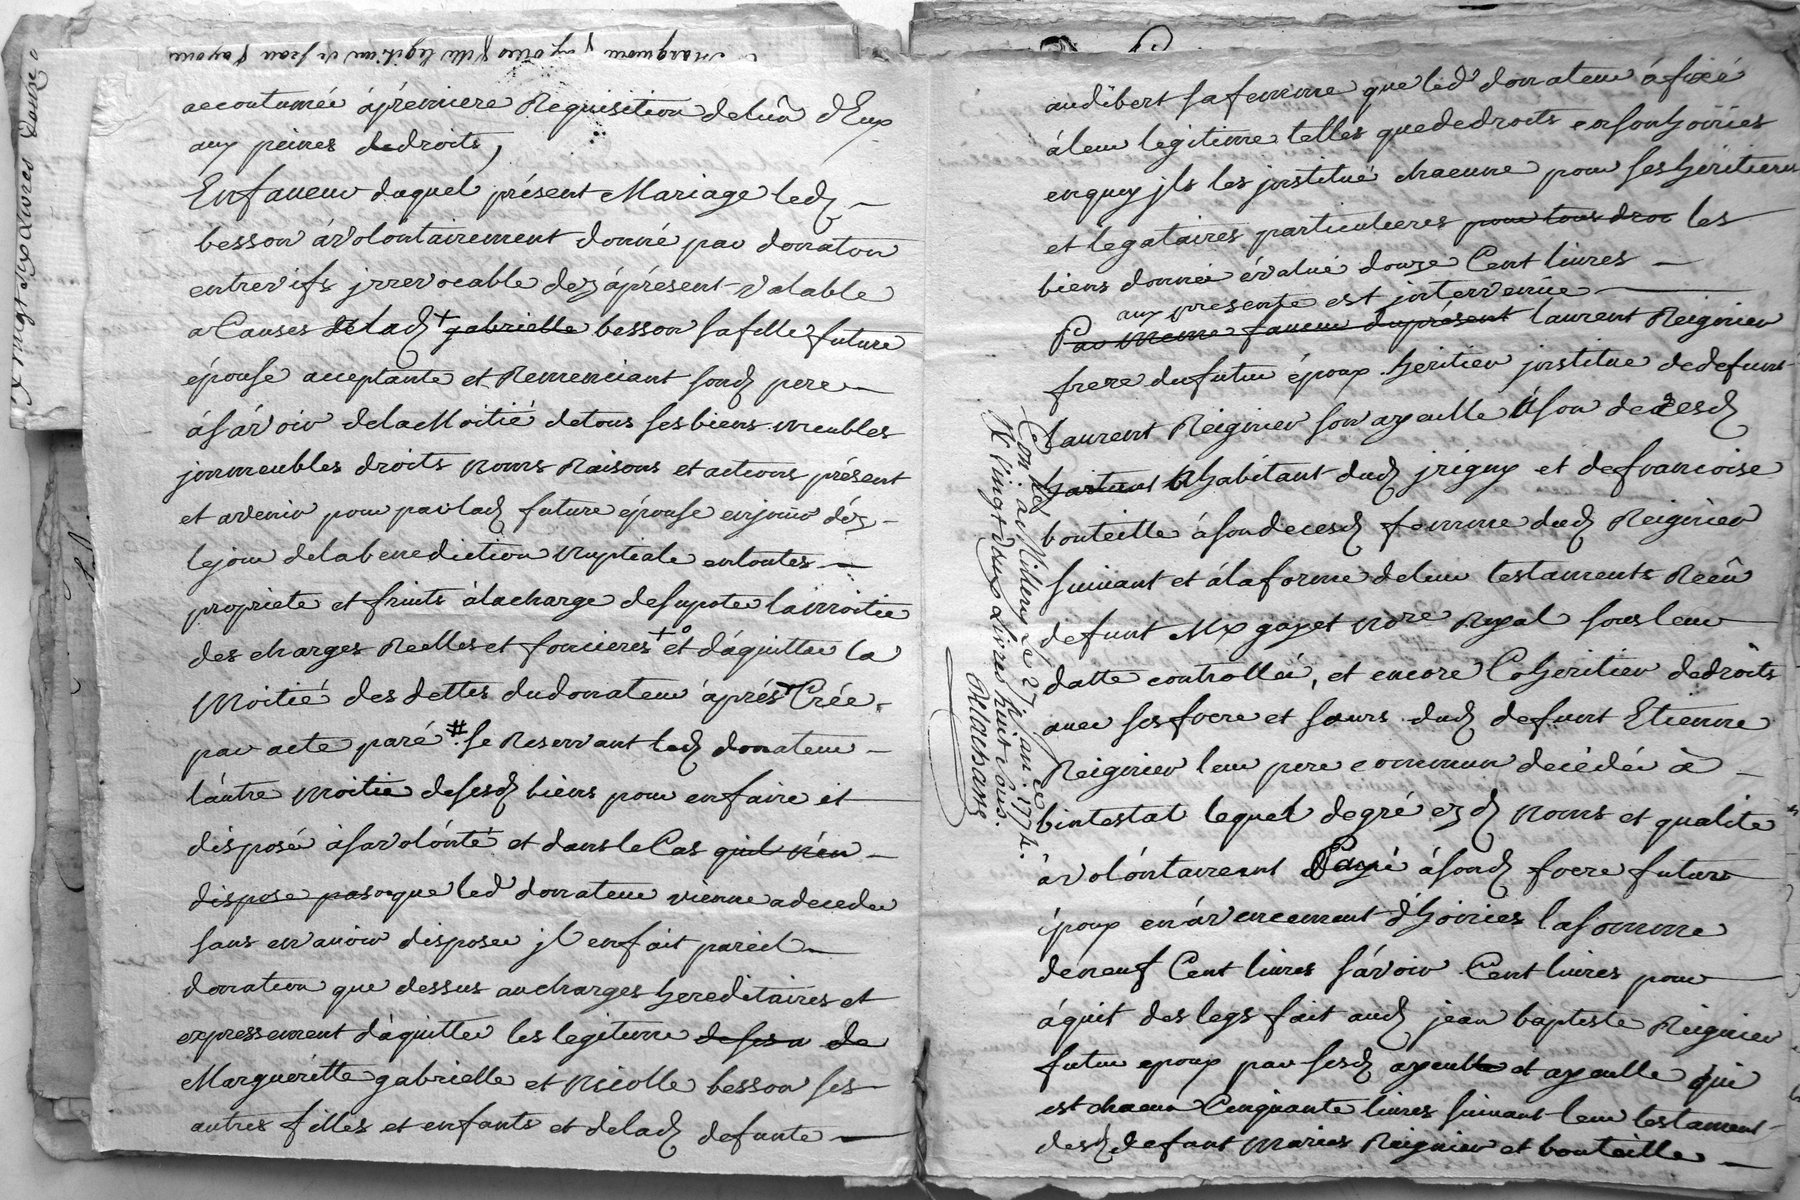 accoutumée àpremiere Requisition delun d'Eux
aux peines dedroits,
Enfaueur daquel présent Mariage led.
besson àvolontairement donné par donaton
entrevifs jrrevocable dez àprésent valable
a Causes de lad. + gabrielle besson sa fille future
épouse acceptante et Remerciant sond. pere
àsávoir dela Moitié detous ses biens meubles
jmmeubles droits noms Raisons et actions présent
et avenir pour par lad. future épouse enjouir déz
lejour dela benediction nuptiale entoutes
propriete et fruits àlacharge desuporter lamoitié
des charges Reelles et foncieres + et dáquitter la
Moitié des dettes dudonateur áprés Crée
par acte paré # se Reservant led. donateur
lautre moitié desesd. biens pour enfaire et
disposé àsavolónté et dans le Cas quil nen
dispose pas que led. donateur vienne adeceder
sans en avoir disposer jl enfait pareil
donation que dessus aucharges hereditaires et
expressement dáquitter les legitime de ses de
Marguéritte gabrielle et nicolle besson ses
autres filles et enfants et delad. defunte
audibert sa femme que led. donateur á fixé
áleur legitime telles quededroits en son hoiries
enquoy jls les jnstitue chacune pour ses héritieres
et legataires particulieres pour tous droi les
biens donnée évalué douze Cent livres
aux presente est jntervenue
Par meme faueur duprésent laurent Reignier
frere dufutur époux héritier jnstitue dedefunt
laurent Reignier son ayeulle á son decesd.
habitant dud. jrigny et defrancoise
bouteille ásondecesd. femme dud. Reignier
suiuant et álaforme deleur testaments Recu
defunt Me gayet no.re Royal sous leur
datte controllée, et encore Coheritier dedroits
auec ses frere et sœurs dud. defunt Etienne
Reignier leur pere commun decédée à
bintestat lequel degré ezd. noms et qualité
àvolóntairement Payé ásond. frere futur
époux enávencement d'hoiries la somme
deneuf Cent livres sávoir Cent livres pour
áquit des legs fait aud. jean baptiste Reignier
futur epoux par sesd. ayeul et ayeulle qui
est chacun Cinquante livres suiuant leur testament
desd. defunt mariés Reignier et bouteille
Con.lé a Millery Le 27 jan.er 1774.
R. vingt deux Livres huit sous.